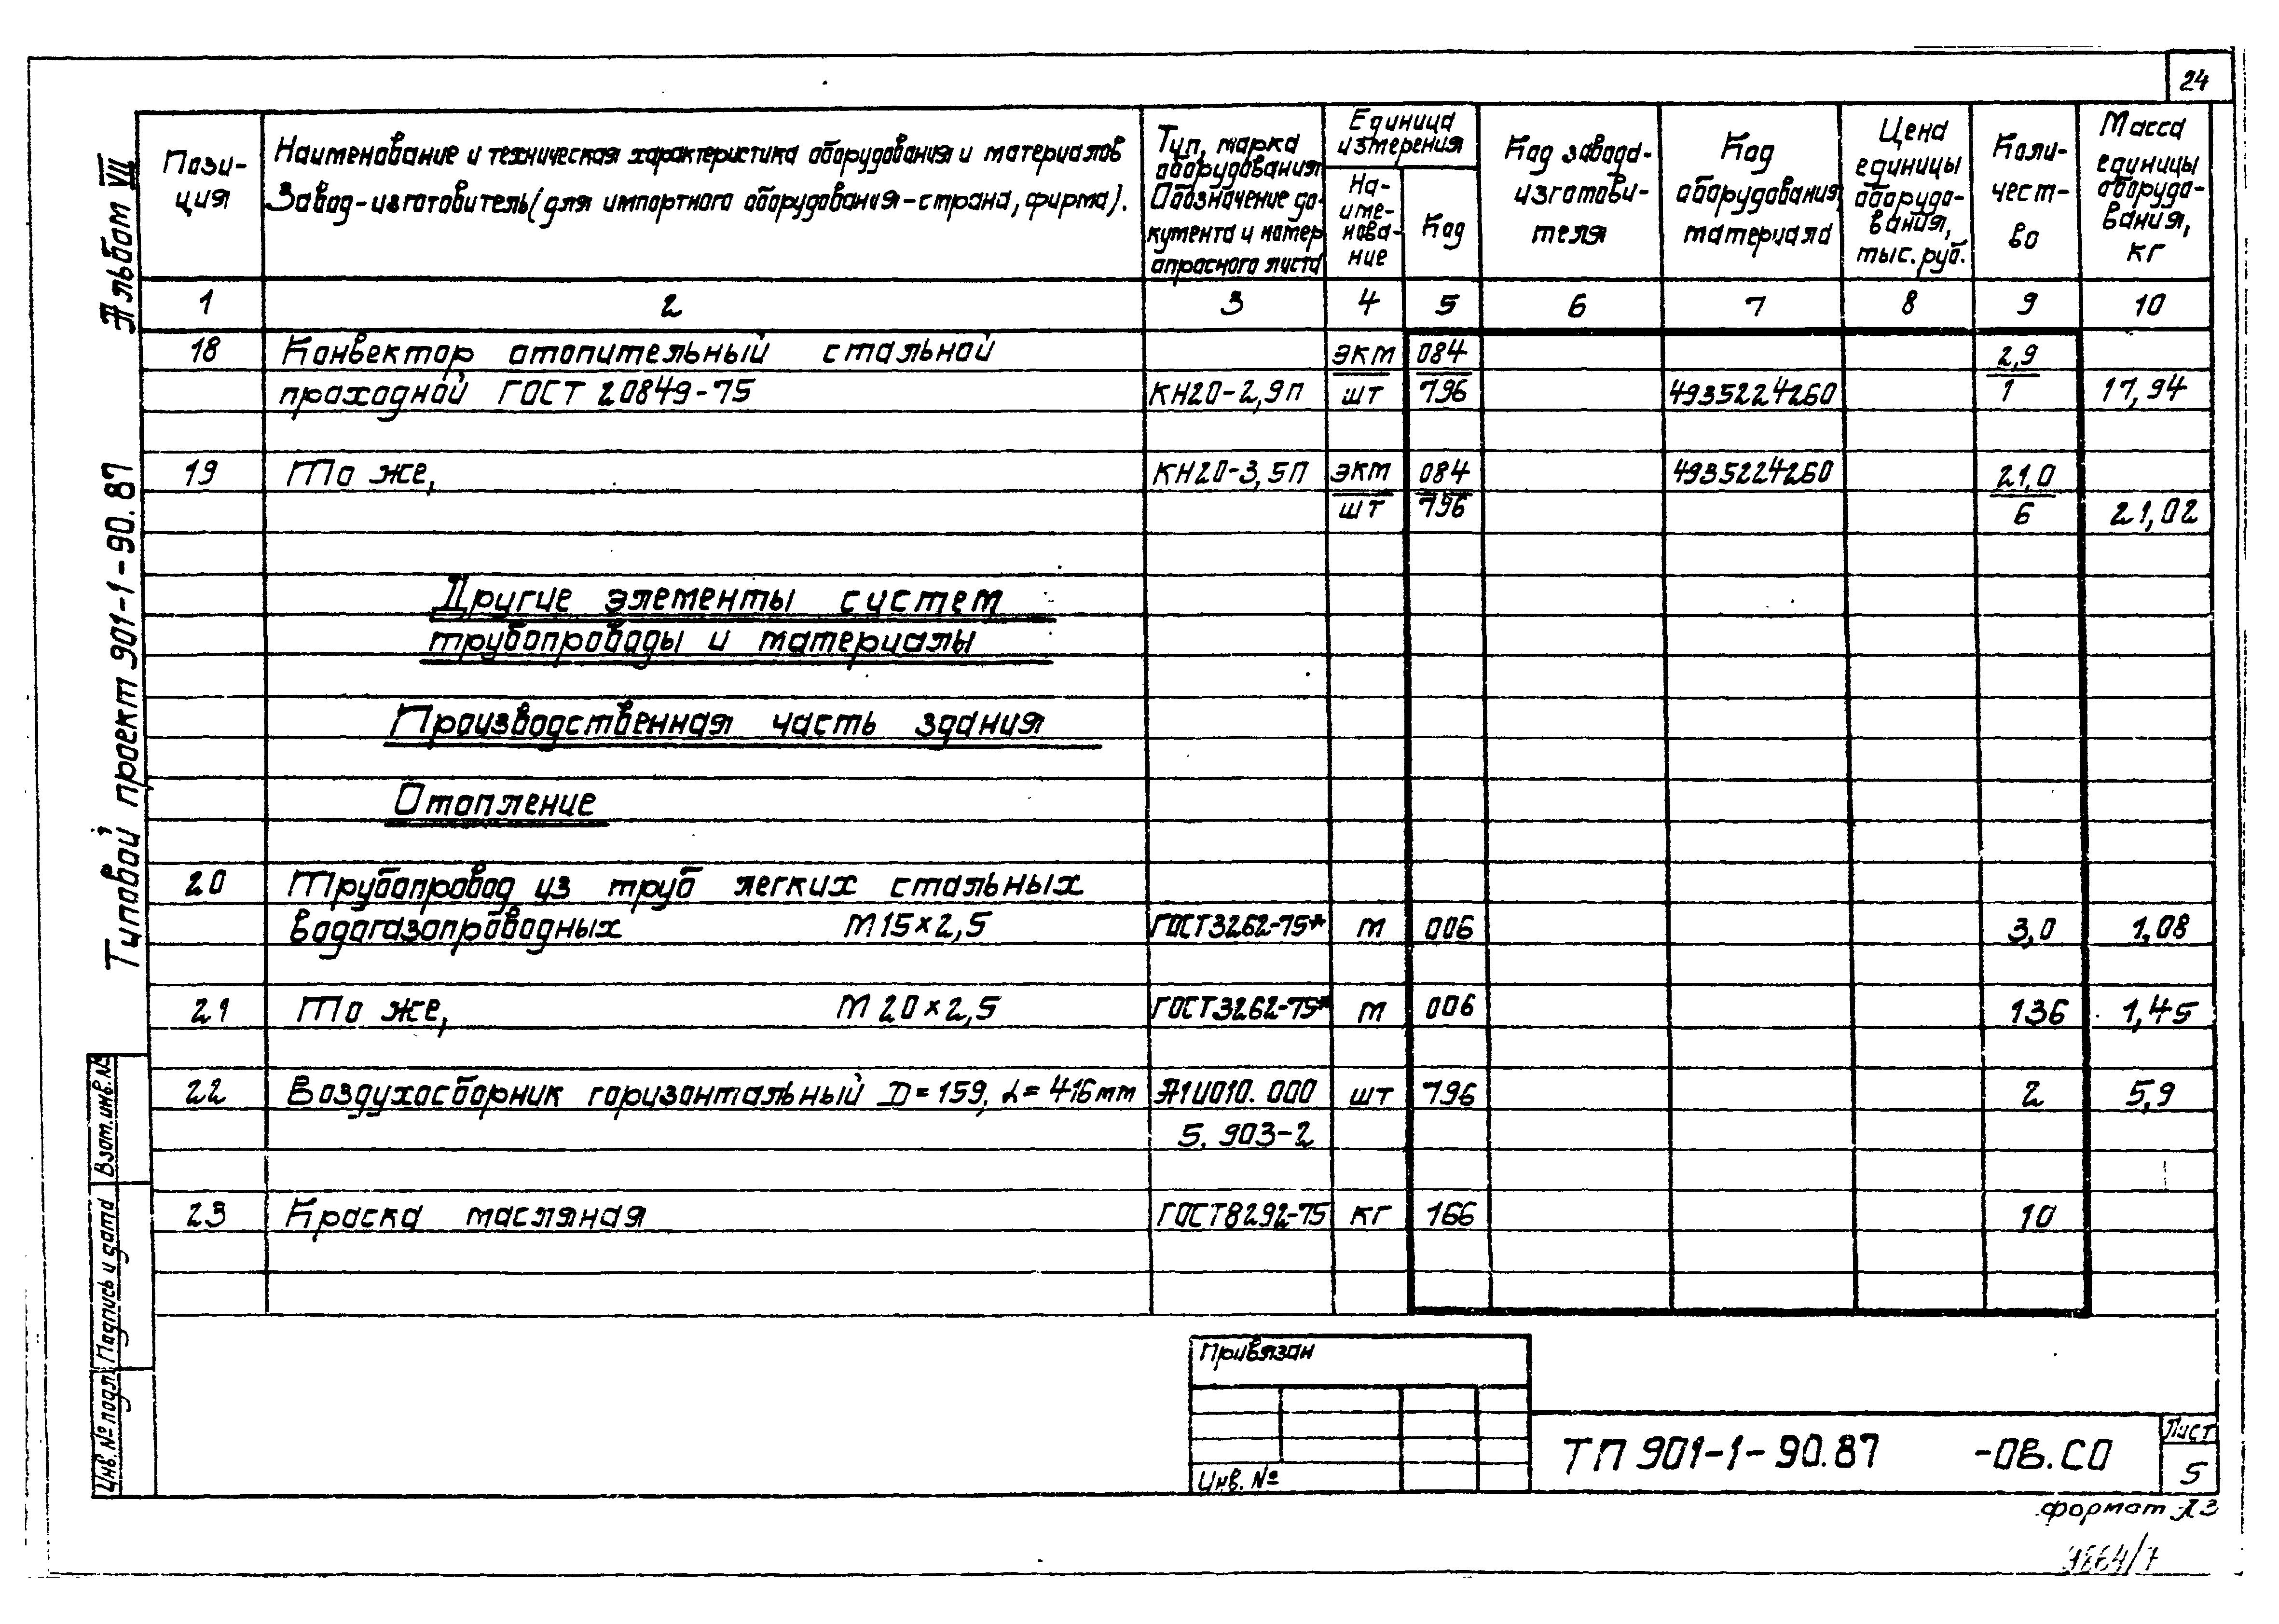 24
Альбом VII
Типовой проект 901-1-90.87
Пози-
ция
Наименование и техническая характеристика оборудования и материалов
Завод-изготовитель (для импортного оборудования-страна, фирма).
Тип, марка
оборудования
Обозначение до-
кумента и номер
опросного листа
Единица
измерения
На-
име-
нова-
ние
Код
Код завода-
изготови-
теля
Код
оборудования,
материала
Цена
единицы
оборудо-
вания,
тыс. руб.
Коли-
чест-
во
Масса
единицы
оборудо-
вания,
кг
1 2 3 4 5 6 7 8 9 10
18 Конвектор отопительный стальной экм 084 2,9
проходной ГОСТ 20849-75 КН20-2,9П шт 796 4935224260 1 17,94
19 То же, КН20-3,5П экм 084 4935224260 21,0
шт 796 6 21,02
Другие элементы систем
трубопроводы и материалы
Производственная часть здания
Отопление
20 Трубопровод из труб легких стальных
водогазопроводных М15×2,5 ГОСТ3262-75* м 006 3,0 1,08
21 То же, М20×2,5 ГОСТ3262-75* м 006 136 1,45
22 Воздухосборник горизонтальный D=159, L=416мм А1И010.000 шт 796 2 5,9
5.903-2
23 Краска масляная ГОСТ8292-75 кг 166 10
Взам.инв.№
Подпись и дата
Инв.№ подл.
Привязан
Инв. №
ТП 901-1-90.87 -ОВ.СО
Лист
5
формат А3